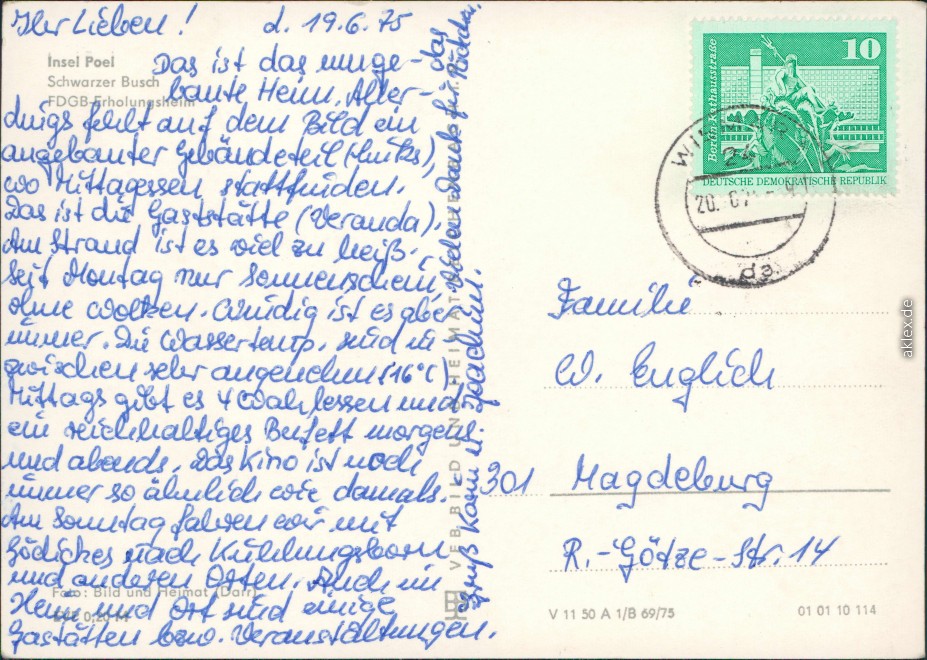 Ihr Lieben! d. 19.6.75
Insel Poel
Schwarzer Busch
FDGB-Erholungsheim
Das ist das umge-
baute Heim. Aller-
dings fehlt auf dem Bild ein
angebauter Gebäudeteil (links),
wo Mittagessen stattfinden.
Das ist die Gaststätte (Veranda).
Am Strand ist es viel zu heiß.
Seit Montag nur Sonnenschein
ohne Wolken. Windig ist es aber
immer. Die Wassertemp. sind in
zwischen sehr angenehm (16°C)
Mittags gibt es 4 Wahlessen und
ein reichhaltiges Bufett morgens
und abends. Das Kino ist noch
immer so ähnlich wie damals.
Am Sonntag fahren wir mit
nach Kühlungsborn
und anderen Orten. Auch im
Heim und Ort sind einige
Gaststätten bzw. Veranstaltungen.
Foto: Bild und Heimat (Darr)
0,20 M
Vielen Dank für das
Gruß Karin u. Joachim
VEB BILD UND HEIMAT
10
Berlin, Rathausstraße
DEUTSCHE DEMOKRATISCHE REPUBLIK
WISMAR
20.
Familie
W. Englich
301 Magdeburg
R.-Götze-Str. 14
V 11 50 A 1/B 69/75
01 01 10 114
aklex.de